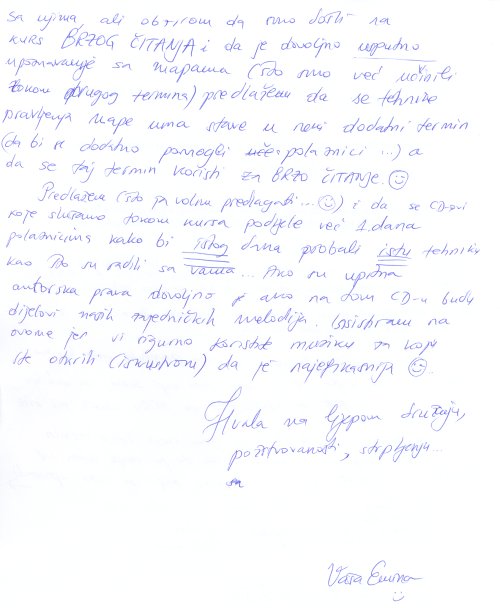 sa njima, ali obzirom da smo došli na
kurs BRZOG ČITANJA i da je dovoljno usputno
upoznavanje sa mapama (što smo već učinili
tokom drugog termina) predlažem da se tehnike
pravljenja mape uma stave u neki dodatni termin
(da bi se dodatno pomogli polaznici ...) a
da se taj termin koristi za BRZO ČITANJE. ☺
Predlažem (što ja volim predlagati... ☺) i da se CD-ovi
koje slušamo tokom kursa podijele već 1. dana
polaznicima kako bi istog dana probali istu tehniku
kao što su radili sa vama... Ako su upitna
autorska prava dovoljno je ako na tom CD-u budu
dijelovi naših zajedničkih melodija. Insistiram na
ovome jer vi sigurno koristite muziku za koju
ste otkrili (iskustvom) da je najefikasnija ☺.
Hvala na lijepom druženju,
požrtvovanosti, strpljenju...
Vaša Emina